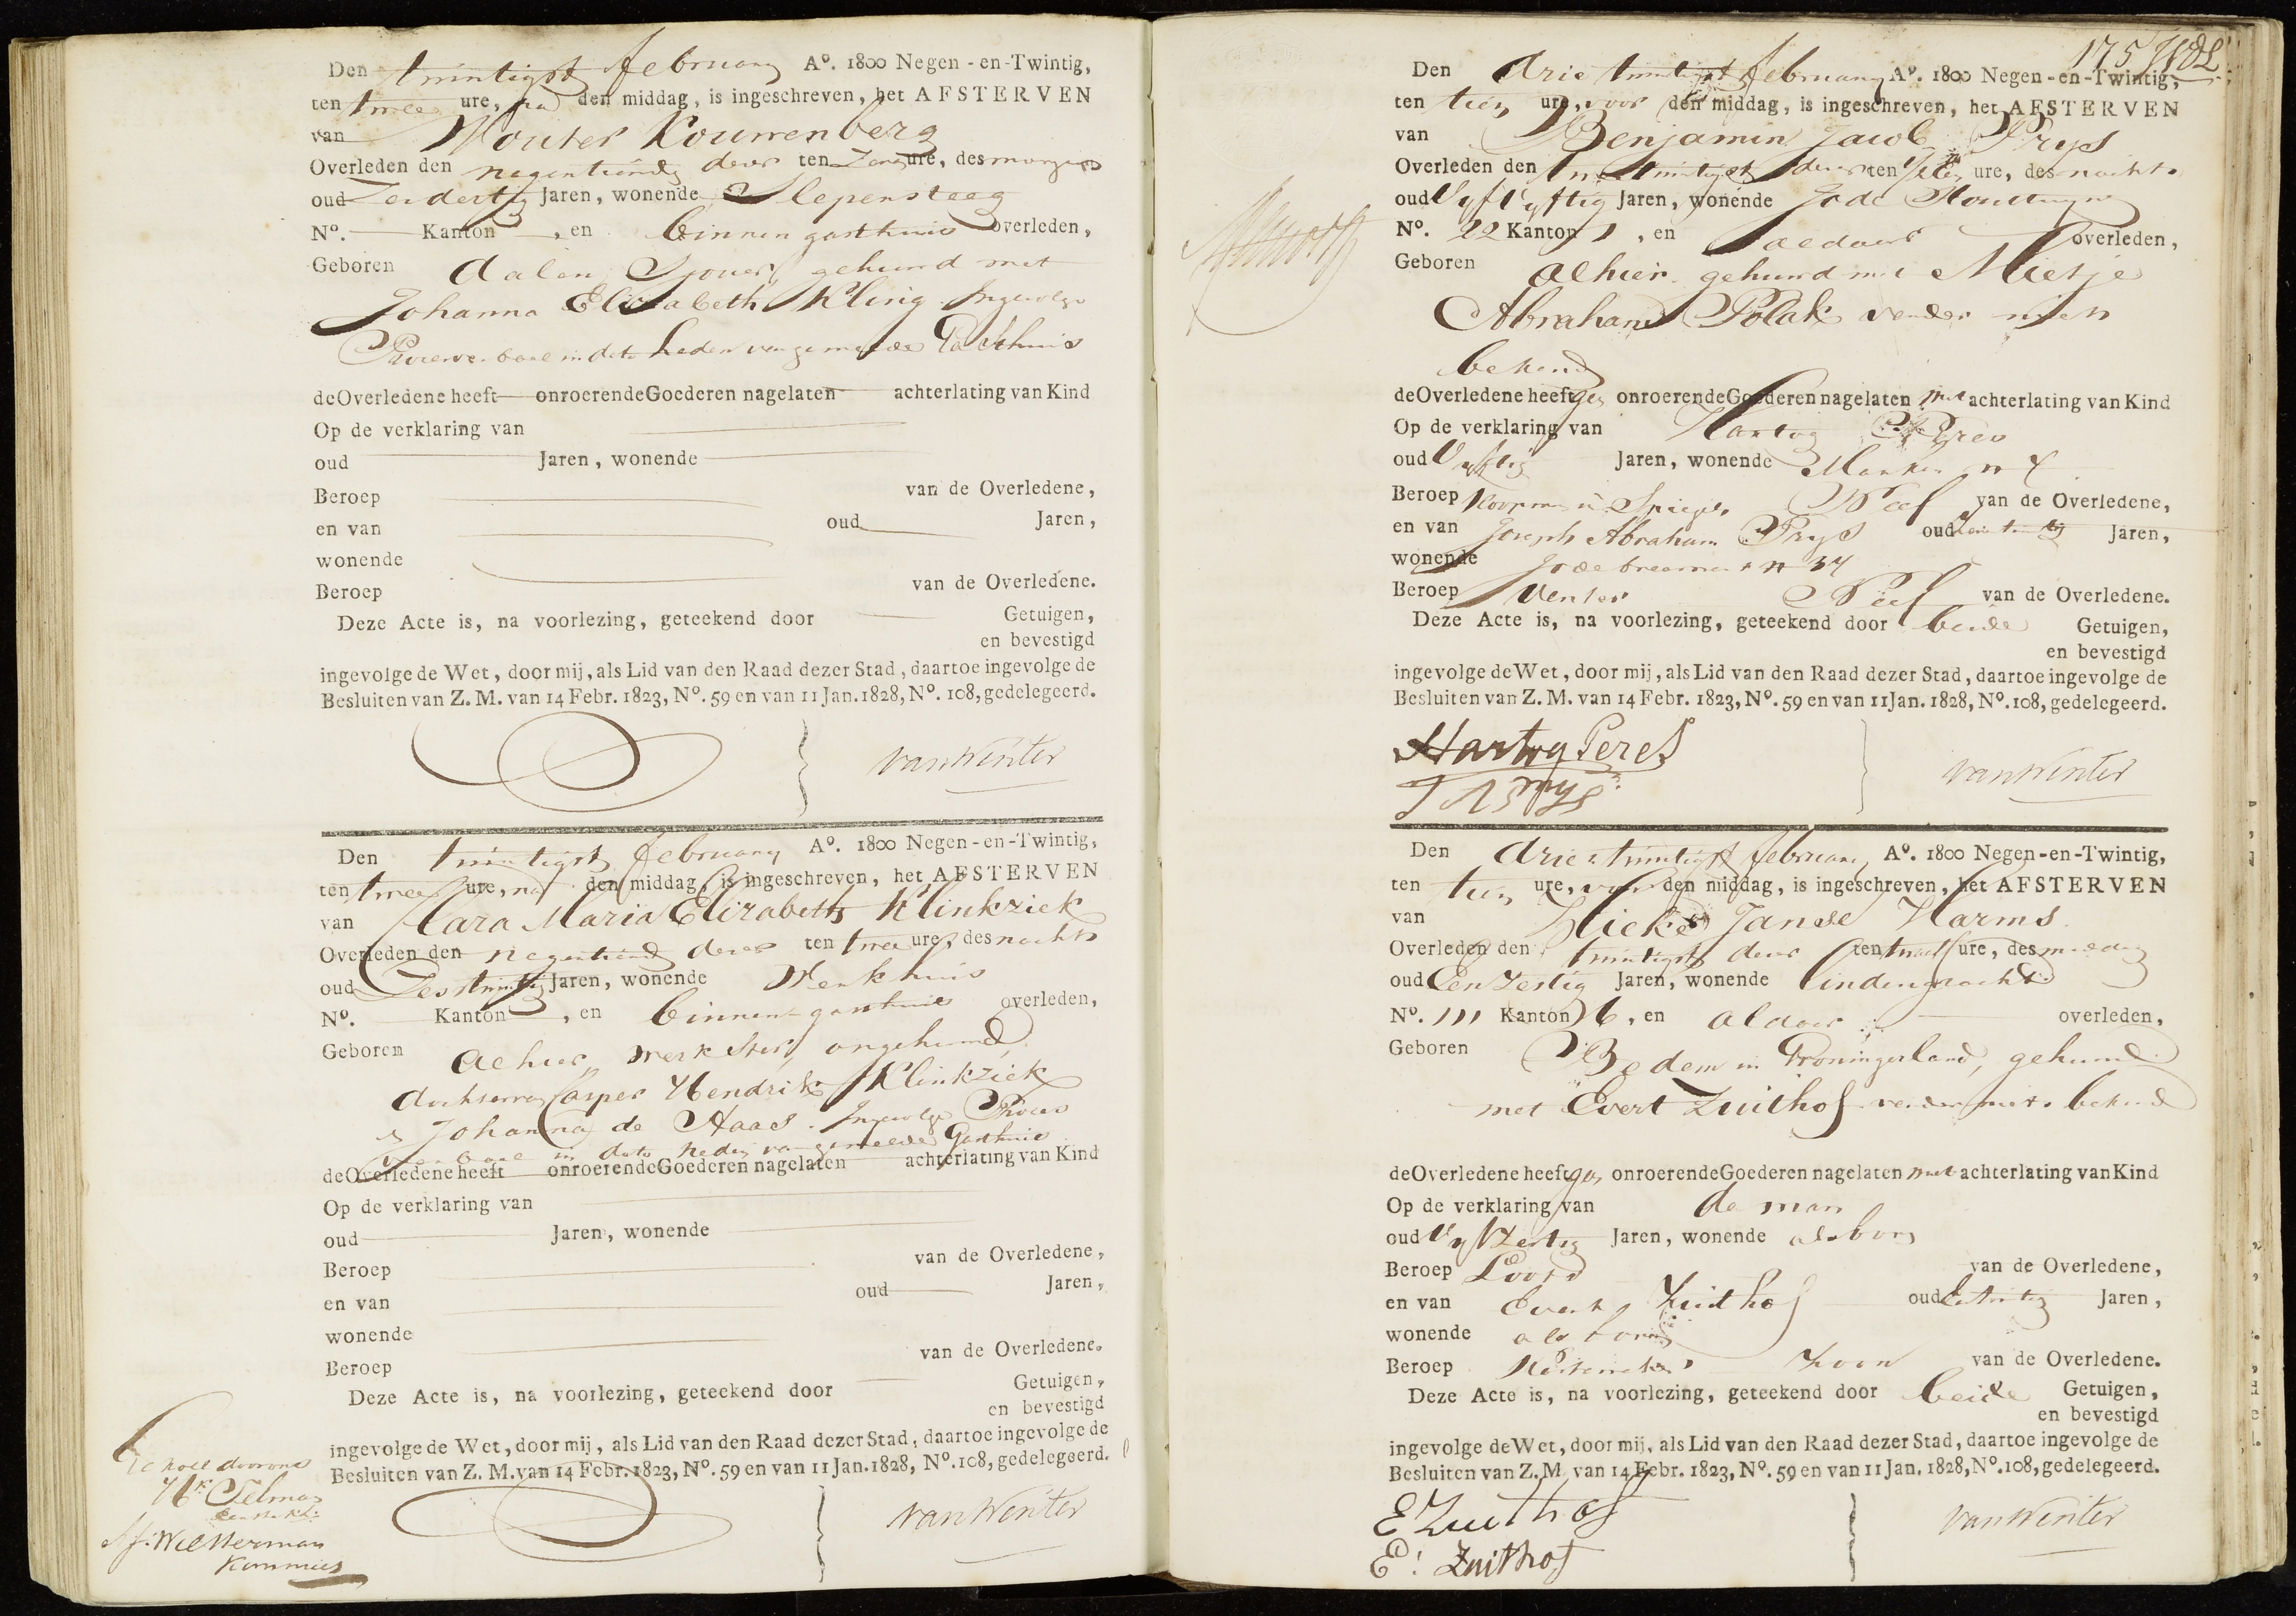 Den twintigst february Aº. 1800 Negen-en-Twintig,
ten twee ure, na den middag, is ingeschreven, het AFSTERVEN
van Wouter Kouwenberg
Overleden den negentiende dezer ten ure, des morgens
oud Jaren, wonende Slepersteeg
Nº. Kanton , en binnen gasthuis overleden,
Geboren dalen, Sjouer, gehuwd met
Johanna Elizabeth Kling. Ingevolge
in dato heden van gemelde Gasthuis
de Overledene heeft onroerende Goederen nagelaten achterlating van Kind
Op de verklaring van
oud Jaren, wonende
Beroep van de Overledene,
en van oud Jaren,
wonende
Beroep van de Overledene.
Deze Acte is, na voorlezing, geteekend door Getuigen,
en bevestigd
ingevolge de Wet, door mij, als Lid van den Raad dezer Stad, daartoe ingevolge de
Besluiten van Z. M. van 14 Febr. 1823, Nº. 59 en van 11 Jan. 1828, Nº. 108, gedelegeerd.
van Winter
Den twintigst february Aº. 1800 Negen-en-Twintig,
ten twee ure, na den middag, is ingeschreven, het AFSTERVEN
van Clara Maria Elizabeth Klinkziek
Overleden den negentiende dezer ten twee ure, des nachts
oud Zestwintig Jaren, wonende Werkhuis
Nº. Kanton , en binnen gasthuis overleden,
Geboren alhier, werkster, ongehuwd,
dochter van Casper Hendrik Klinkziek
& Johanna de Haas. Ingevolge Proces
verbaal in dato heden van gemelde Gasthuis
de Overledene heeft onroerende Goederen nagelaten achterlating van Kind
Op de verklaring van
oud Jaren, wonende
Beroep van de Overledene,
en van oud Jaren,
wonende
Beroep van de Overledene.
Deze Acte is, na voorlezing, geteekend door Getuigen,
en bevestigd
ingevolge de Wet, door mij, als Lid van den Raad dezer Stad, daartoe ingevolge de
Besluiten van Z. M. van 14 Febr. 1823, Nº. 59 en van 11 Jan. 1828, Nº. 108, gedelegeerd.
door ons
Westerman
Kommies
van Winter
175
Den drie twintigst february Aº. 1800 Negen-en-Twintig,
ten tien ure, voor den middag, is ingeschreven, het AFSTERVEN
van Benjamin Jacob Prys
Overleden den dezer ten ure, des nachts
oud Vyf Vyftig Jaren, wonende Jode Houttuijnen
Nº. 22 Kanton 1 , en aldaar overleden,
Geboren alhier, gehuwd met Mietje
Abraham Polak verder niet
bekend
de Overledene heeft gen onroerende Goederen nagelaten met achterlating van Kind
Op de verklaring van Hartog Peres
oud Vyftig Jaren, wonende Marken n
Beroep Koopman in Spiegels Neef van de Overledene,
en van Joseph Abraham Prys oud Jaren,
wonende Jodebreestraat n 34
Beroep Venter Neef van de Overledene.
Deze Acte is, na voorlezing, geteekend door beide Getuigen,
en bevestigd
ingevolge de Wet, door mij, als Lid van den Raad dezer Stad, daartoe ingevolge de
Besluiten van Z. M. van 14 Febr. 1823, Nº. 59 en van 11 Jan. 1828, Nº. 108, gedelegeerd.
Hartog Peres
van Winter
Den drie & twintigst february Aº. 1800 Negen-en-Twintig,
ten tien ure, voor den middag, is ingeschreven, het AFSTERVEN
van Hieke Janse Harms
Overleden den twintigst dezer ten twaalf ure, des middag
oud Een Zestig Jaren, wonende Lindengracht
Nº. 111 Kanton 36, en aldaar overleden,
Geboren Bedem in Groningerland, gehuwd
met Evert Zuithof verder niet bekend
de Overledene heeft gen onroerende Goederen nagelaten met achterlating van Kind
Op de verklaring van de man
oud Vyf Zestig Jaren, wonende als boven
Beroep van de Overledene,
en van Evert Zuidhof oud Jaren,
wonende als boven
Beroep Zoon van de Overledene.
Deze Acte is, na voorlezing, geteekend door beide Getuigen,
en bevestigd
ingevolge de Wet, door mij, als Lid van den Raad dezer Stad, daartoe ingevolge de
Besluiten van Z. M. van 14 Febr. 1823, Nº. 59 en van 11 Jan. 1828, Nº. 108, gedelegeerd.
E Zuithof
E: Zuithof
van Winter